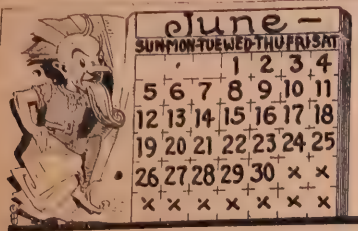 June -
SUN·MON·TUE WED·THU FRI SAT
1 2 3 4
5 6 7 8 9 10 11
12 13 14 15 16 17 18
19 20 21 22 23 24 25
26 27 28 29 30 x x
x x x x x x x